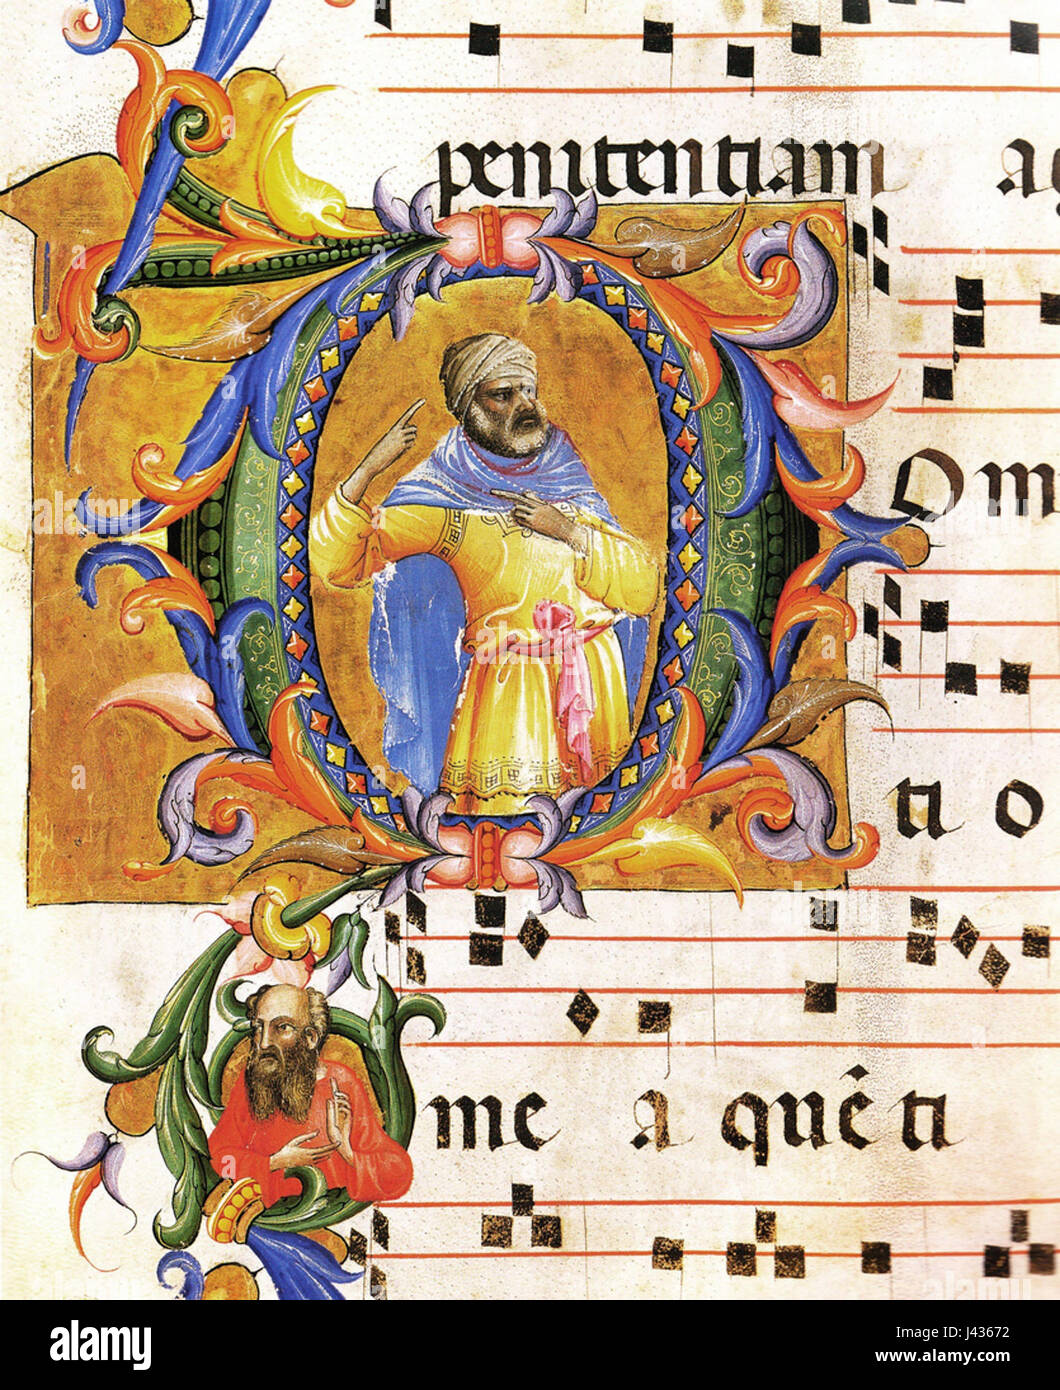 penitentiam a
Om
ti o
me a quē ti
alamy
Image ID: J43672
www.alamy.com